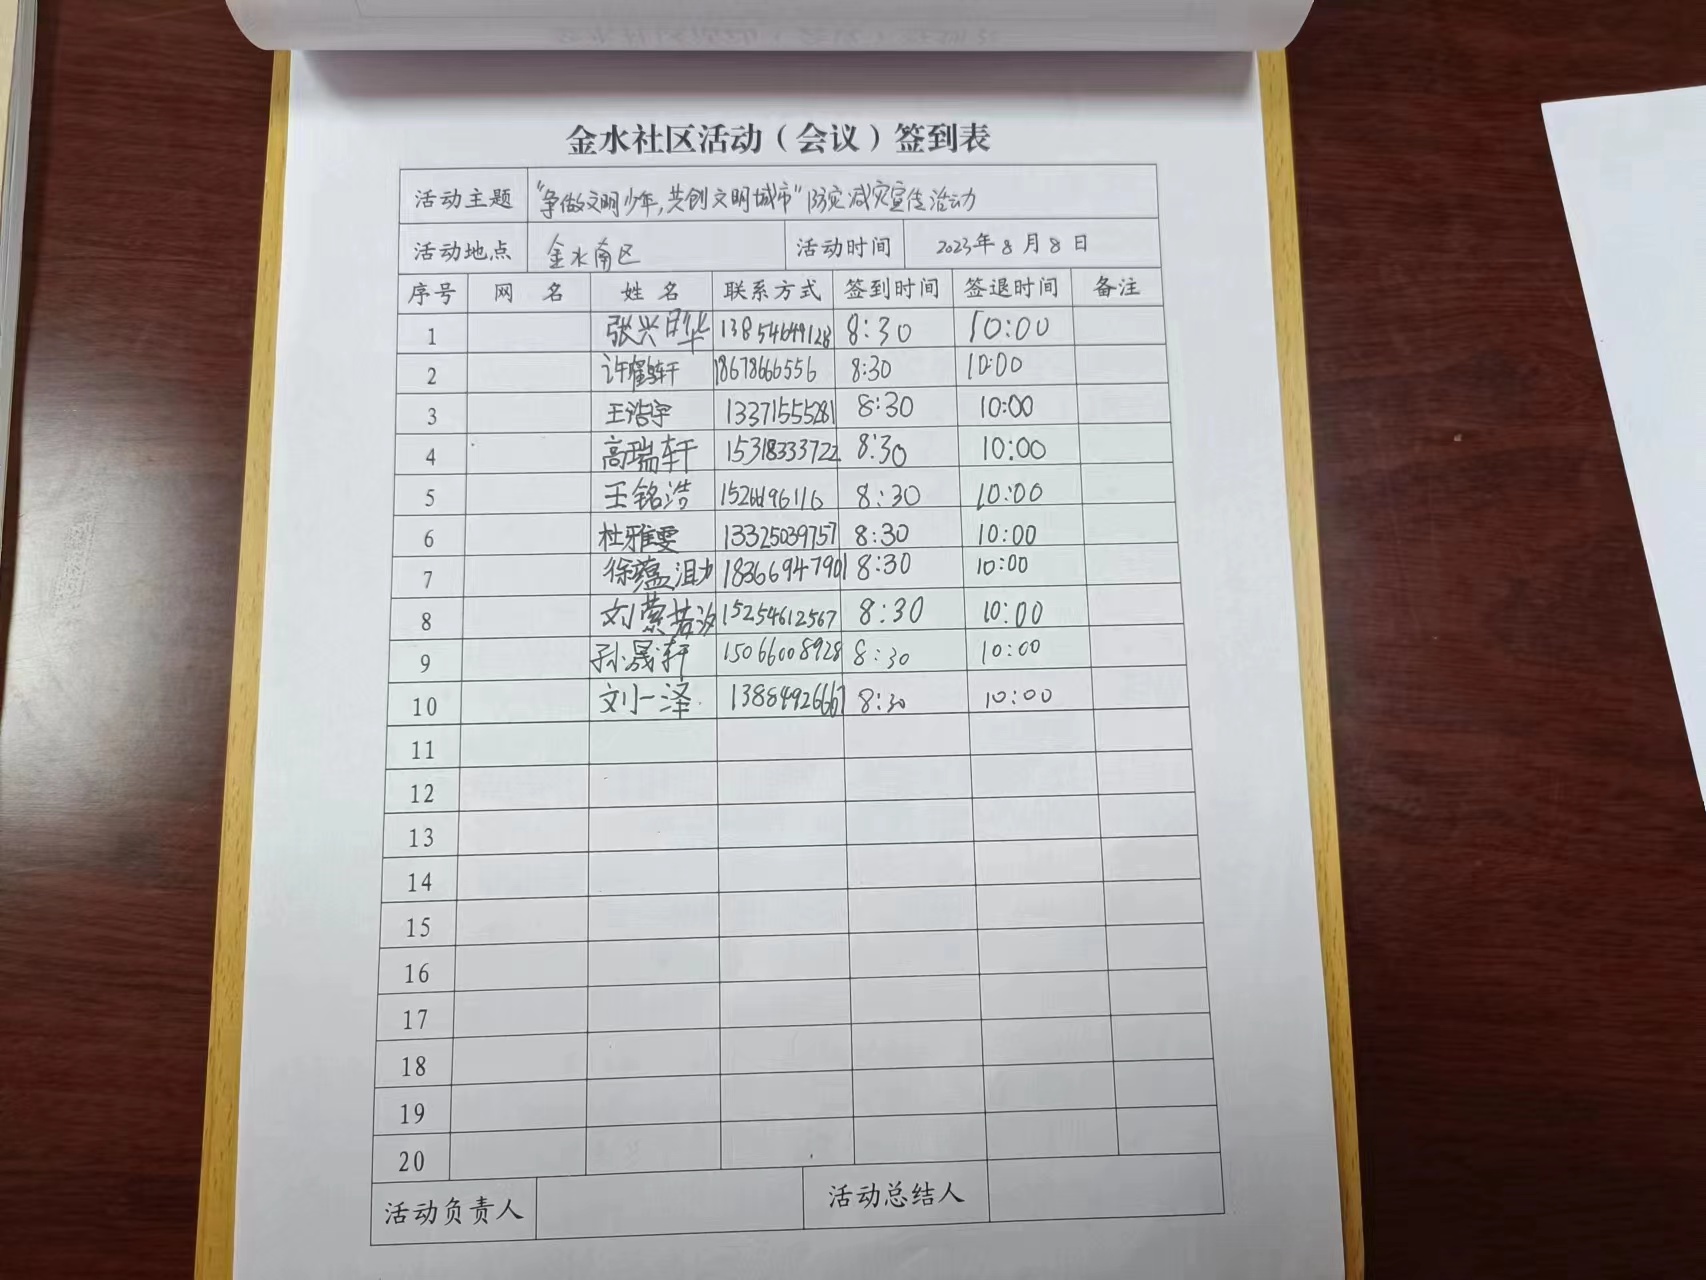 金水社区活动（会议）签到表
活动主题 "争做文明少年，共创文明城市"防灾减灾宣传活动
活动地点 金水南区 活动时间 2023年8月8日
序号 网 名 姓 名 联系方式 签到时间 签退时间 备注
1 张兴晔 13854649128 8:30 10:00
2 许鹤轩 18678666556 8:30 10:00
3 王浩宇 13371555281 8:30 10:00
4 高瑞轩 15318333722 8:30 10:00
5 王铭浩 8:30 10:00
6 杜雅雯 13325039757 8:30 10:00
7 徐蕴 18366947901 8:30 10:00
8 刘 15254612567 8:30 10:00
9 孙晟轩 15066008928 8:30 10:00
10 刘一泽 13884926667 8:30 10:00
11
12
13
14
15
16
17
18
19
20
活动负责人 活动总结人